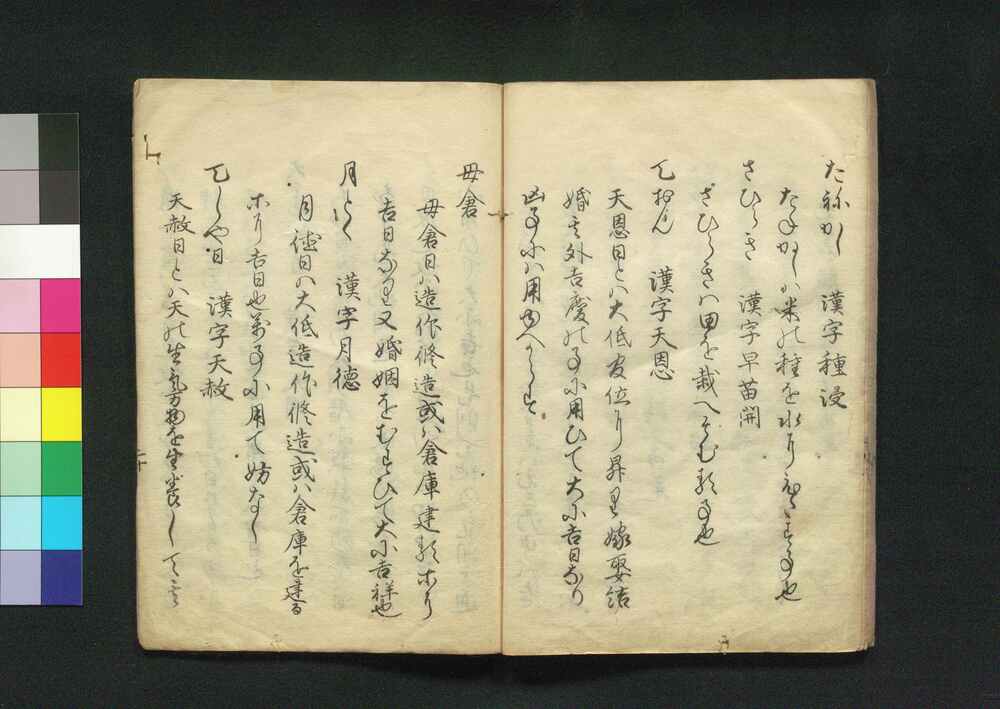 たねかし 漢字種浸
たねかしハ米の種を水に
さひらき 漢字早苗開
さひらきハ田を栽へそむる事也
てんおん 漢字天恩
天恩日とハ大低官位に昇り嫁娶結
婚其外吉慶の事に用ひて大に吉日なり
凶事にハ用ゆへからす
母倉
母倉日ハ造作修造或ハ倉庫建るホに
吉日なり又婚姻をむすひて大に吉祥也
月とく 漢字月徳
月徳日ハ大低造作修造或ハ倉庫を建る
ホに吉日也萬事に用て妨なし
てんしや日 漢字天赦
天赦日とハ天の生気万物を生養して